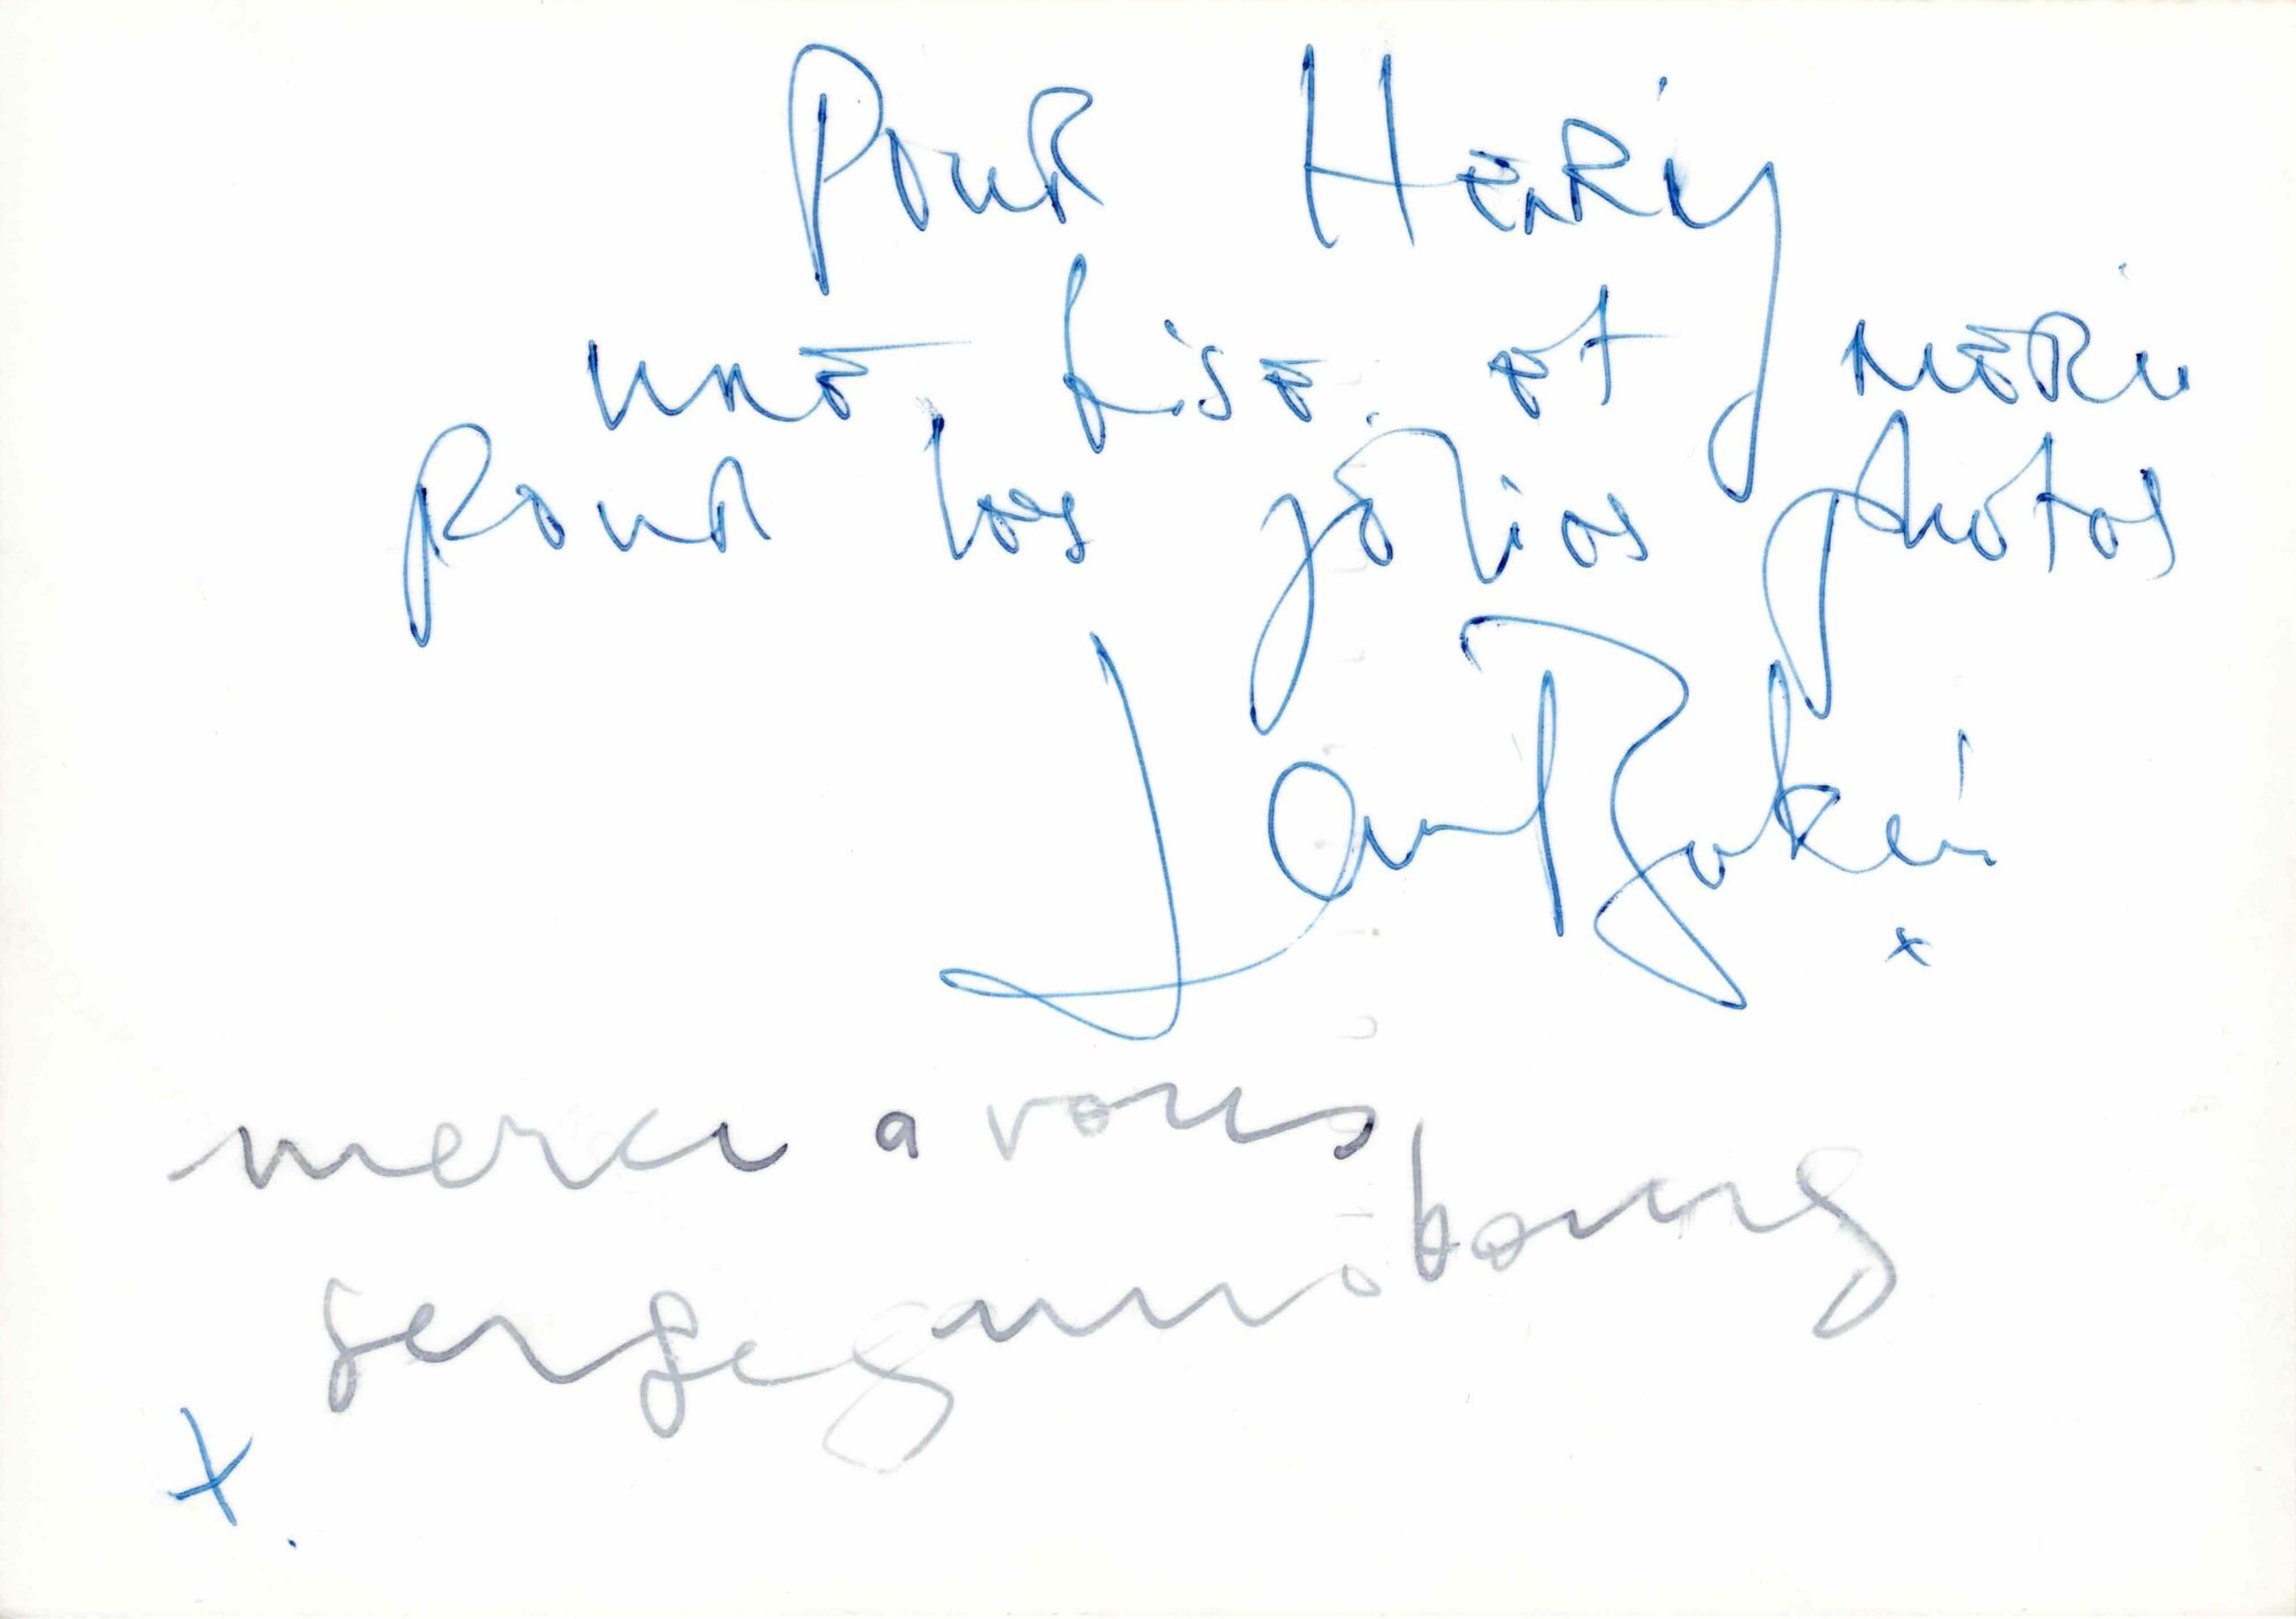 Pour Henry
une bise. et merci
pour les jolies photos
Jane Birkin
x
merci a vous
serge gainsbourg
x.